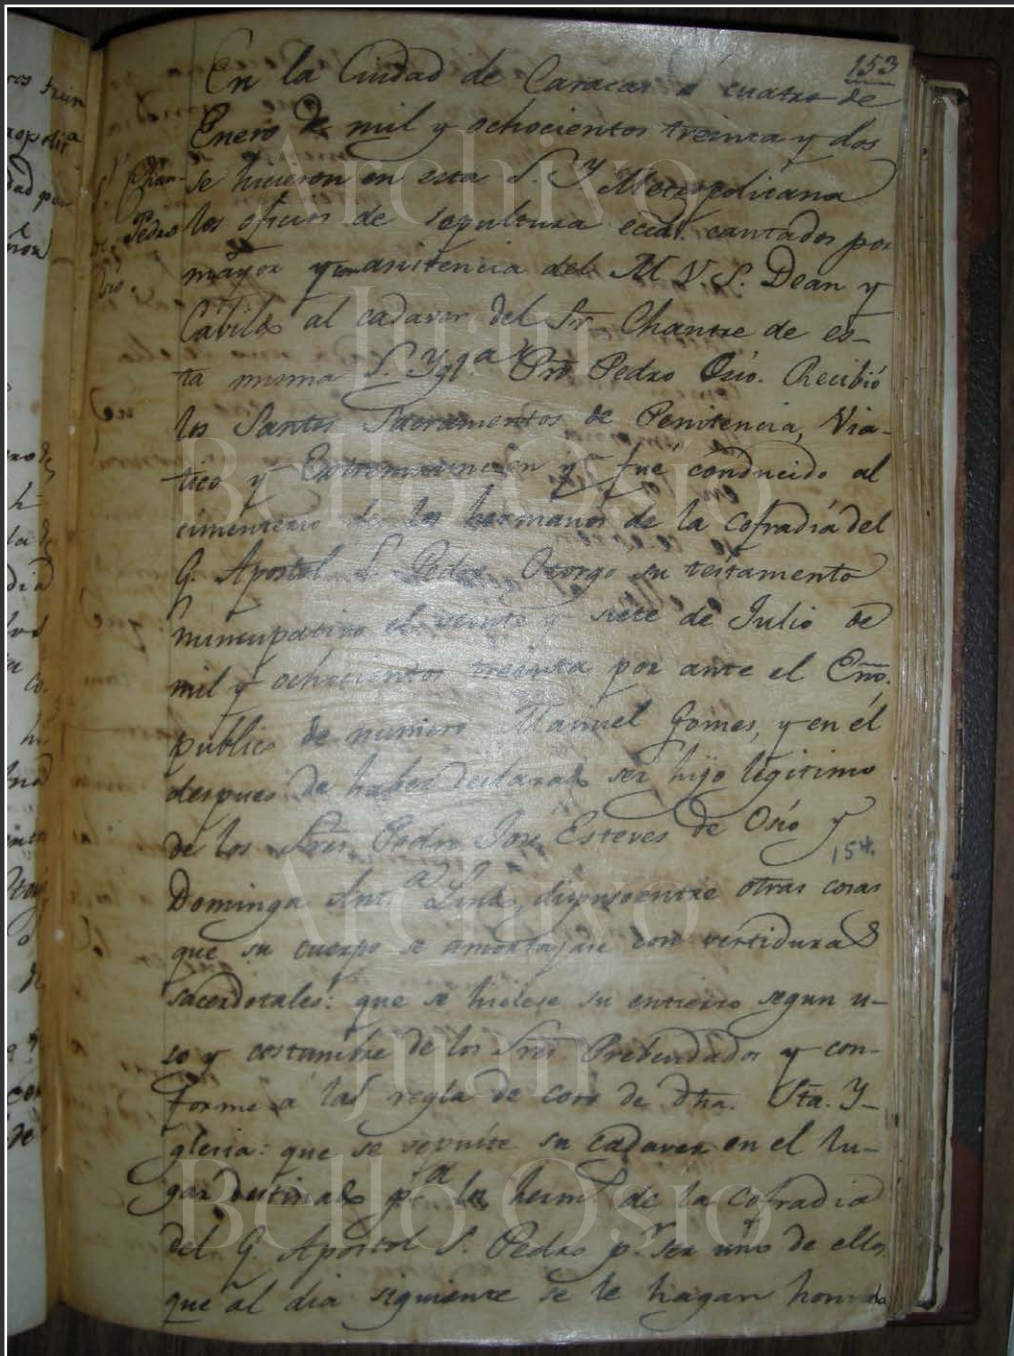 153
En la Ciudad de Caracas á cuatro de
Enero de mil y ochocientos treinta y dos
se hicieron en esta S. Y. Metropolitana
los oficios de sepultura eccâ. cantados por
mayor y con asistencia del M. V. S. Dean y
Cabildo al cadaver del Sr. Chantre de es-
ta misma S. Yglª. Pro. Pedro Osío. Recibió
los Santos Sacramentos de Penitencia, Via-
tico y Extremauncion y fué conducido al
cimenterio de los hermanos de la cofradía del
G. Apostol S. Pedro. Otorgó su testamento
nuncupativo el veinte y siete de Julio de
mil y ochocientos treinta por ante el Eno.
publico de numero Manuel Gomes, y en él
despues de haber declarado ser hijo legitimo
de los Sres. Pedro José Esteves de Osío y
154.
Dominga Antª. dispuso entre otras cosas
que su cuerpo se amortajase con vestiduras
sacerdotales: que se hiciese su entierro segun u-
so y costumbre de los Sres. Prebendados y con-
forme a las regla de coro de dha. Sta. Y-
glesia: que se sepulte su cadaver en el lu-
gar destinado pª los herms. de la cofradia
del G. Apostol S. Pedro pr. ser uno de ellos
que al dia siguiente se le hagan honrada
Chan-
Pedro
Archivo
Juan
Bello Osío
Archivo
Juan
Bello Osío